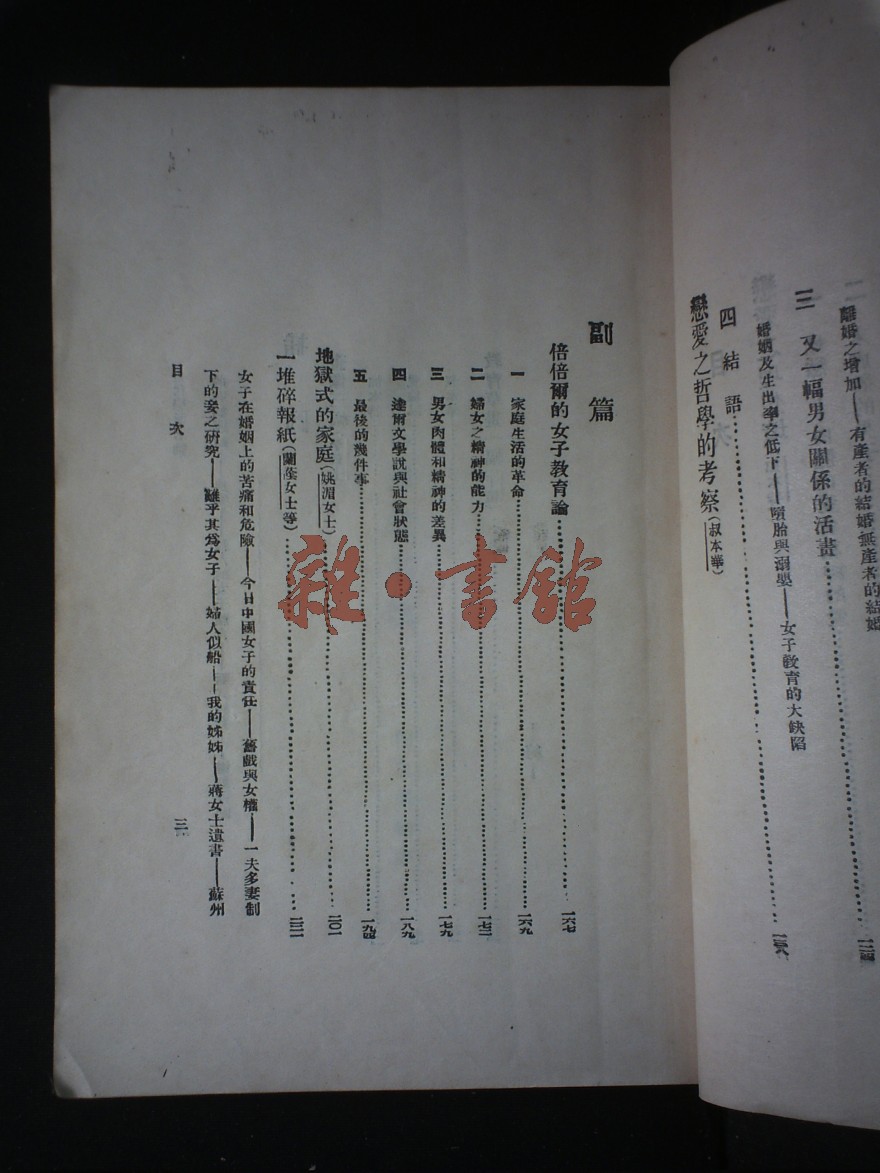 離婚之增加——有產者的結婚無產者的結婚
三 又一幅男女關係的活畫……一二四
婚姻及生出率之低下——墮胎與溺嬰——女子敎育的大缺陷
四 結語……
戀愛之哲學的考察(叔本華)
副篇
倍倍爾的女子敎育論……一六七
一 家庭生活的革命……一六九
二 婦女之精神的能力……一七二
三 男女肉體和精神的差異……一七九
四 達爾文學說與社會狀態……一八九
五 最後的幾件事……一九四
地獄式的家庭(姚湄女士)……二〇一
一堆碎報紙(蘭女士等)……
女子在婚姻上的苦痛和危險——今日中國女子的責任——舊戲與女權——一夫多妻制
下的妾之研究——難乎其爲女子——婦人似船——我的姊姊——蔣女士遺書——蘇州
目次 三
雜·書館